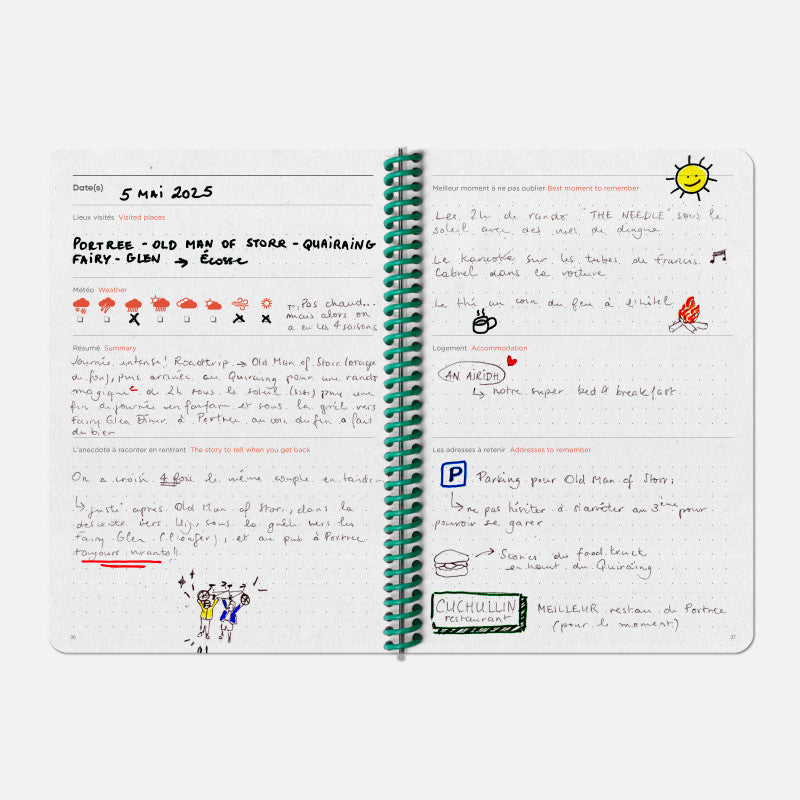 Date(s) 5 MAI 2025
Lieux visités Visited places
PORTREE - OLD MAN OF STORR - QUAIRAING
FAIRY - GLEN → Écosse
Météo Weather
Pas chaud...
mais alors on
a eu les 4 saisons
Résumé Summary
Journée intense! Roadtrip → Old Man of Storr (orage
du fun), puis arrivée au Quiraing pour une rando
magique de 2h sous le soleil (sisi) puis une
fin de journée en fanfare et sous la grêle vers
Fairy Glen Dîner à Portree au coin du feu a fait
du bien
L'anecdote à raconter en rentrant The story to tell when you get back
On a croisé 4 fois le même couple en tandem
↳ juste après Old Man of Storr, dans la
descente vers Uig, sous la grêle vers les
Fairy Glen (l'enfer), et au pub à Portree
toujours vivants!
36
Meilleur moment à ne pas oublier Best moment to remember
Les 2h de rando "THE NEEDLE" sous le
soleil avec des vues de dingue
Le Karaoké sur les tubes de francis
Cabrel dans la voiture
Le thé au coin du feu à l'hôtel
Logement Accommodation
AN AIRIDH
↳ notre super bed & breakfast
Les adresses à retenir Addresses to remember
P Parking pour Old Man of Storr:
↳ ne pas hésiter à s'arrêter au 3ème pour
pouvoir se garer
→ Scones du food truck
en haut du Quiraing
CUCHULLIN
restaurant
MEILLEUR restau de Portree
(pour le moment)
37